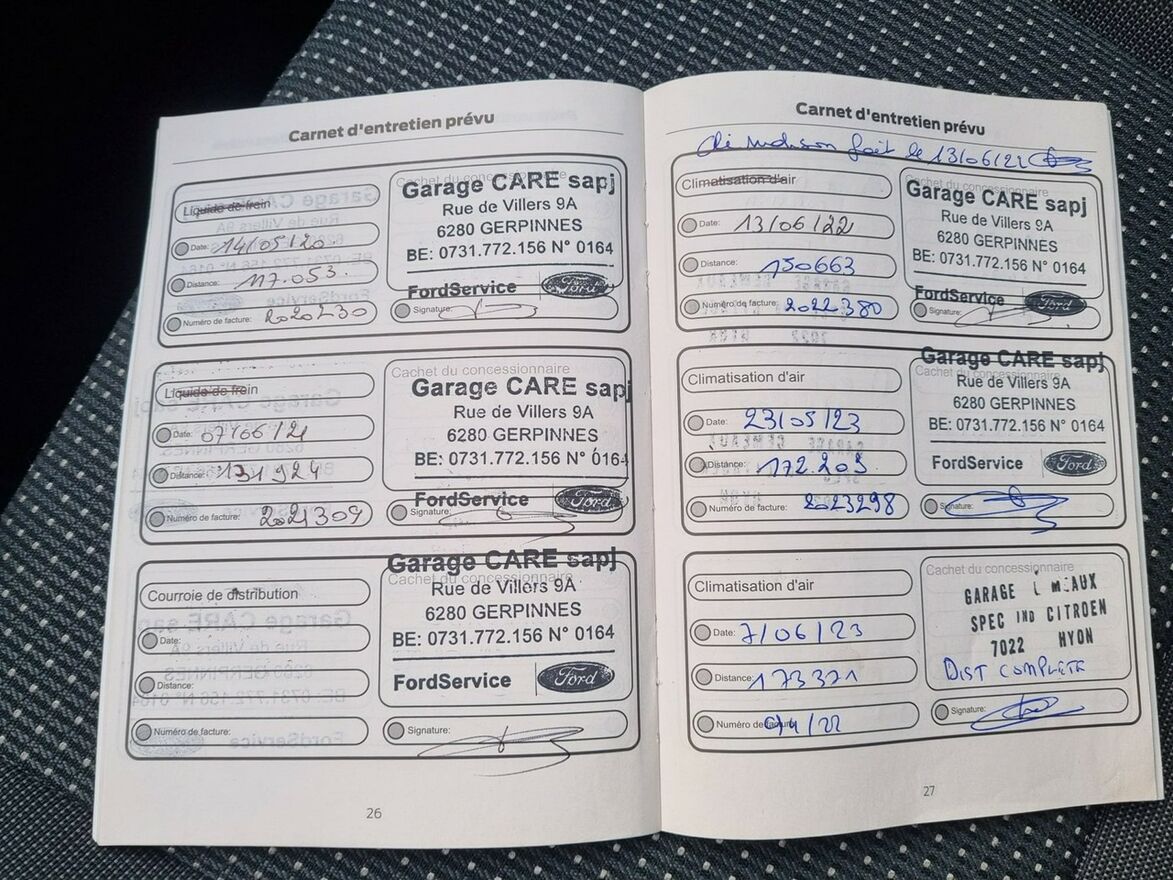 Carnet d'entretien prévu
Liquide de frein
Date: 14/05/20
Distance: 117.053.
Numéro de facture: 2020230
Cachet du concessionnaire
Garage CARE sapj
Rue de Villers 9A
6280 GERPINNES
BE: 0731.772.156 N° 0164
FordService Ford
Signature:
Liquide de frein
Date: 07/06/21
Distance: 131924
Numéro de facture: 2021309
Cachet du concessionnaire
Garage CARE sapj
Rue de Villers 9A
6280 GERPINNES
BE: 0731.772.156 N° 0164
FordService Ford
Signature:
Courroie de distribution
Date:
Distance:
Numéro de facture:
Garage CARE sapj
Cachet du concessionnaire
Rue de Villers 9A
6280 GERPINNES
BE: 0731.772.156 N° 0164
FordService Ford
Signature:
26
Carnet d'entretien prévu
fait le 13/06/22
Climatisation d'air
Date: 13/06/22
Distance: 150663
Numéro de facture: 2022380
Cachet du concessionnaire
Garage CARE sapj
Rue de Villers 9A
6280 GERPINNES
BE: 0731.772.156 N° 0164
FordService Ford
Signature:
Climatisation d'air
Date: 23/05/23
Distance: 172.203
Numéro de facture: 2023298
Garage CARE sapj
Cachet du concessionnaire
Rue de Villers 9A
6280 GERPINNES
BE: 0731.772.156 N° 0164
FordService Ford
Signature:
Climatisation d'air
Date: 7/06/23
Distance: 173321
Numéro de facture:
Cachet du concessionnaire
GARAGE
SPEC IND CITROEN
7022 HYON
DIST COMPLETE
Signature:
27